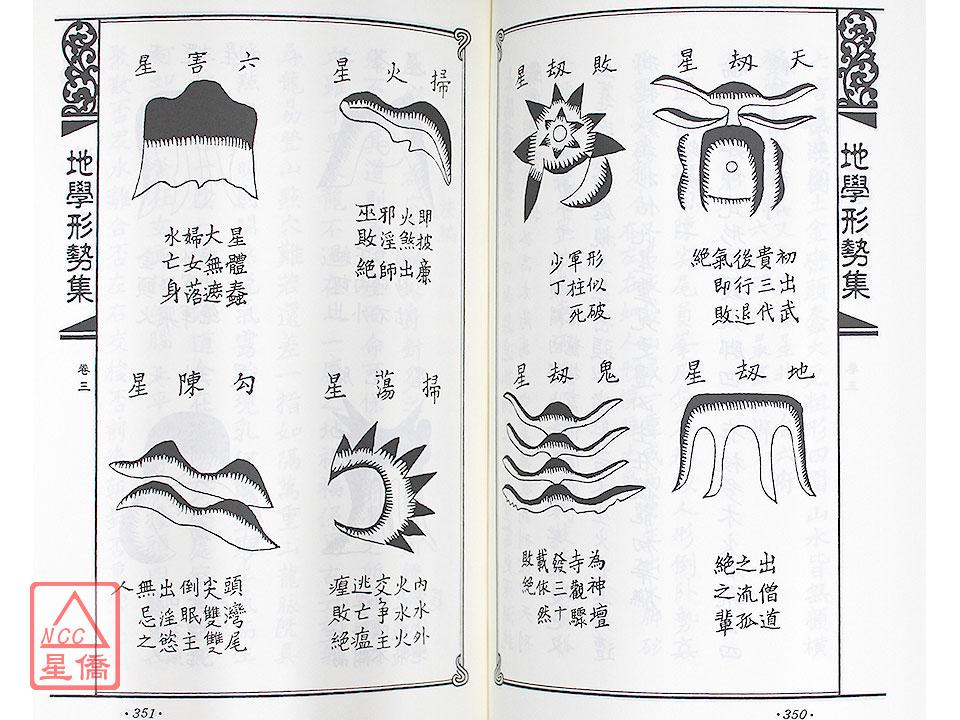 地學形勢集
天刼星
初出武
貴三代
後行退
氣即敗
絕
敗刼星
形似破
軍柱死
少丁
地刼星
出僧道
之流孤
絕之輩
鬼刼星
為神壇
寺觀驟
發三十
載依然
敗絕
·350·
掃火星
即披廉
火煞出
邪淫師
巫敗絕
六害星
星體蠢
大無遮
婦女落
水亡身
掃蕩星
內水外
火水火
交爭主
逃亡瘟
敗絕
勾陳星
頭灣尾
尖雙雙
倒眠主
出淫慾
無忌之
人
地學形勢集
卷三
·351·
NCC
星僑